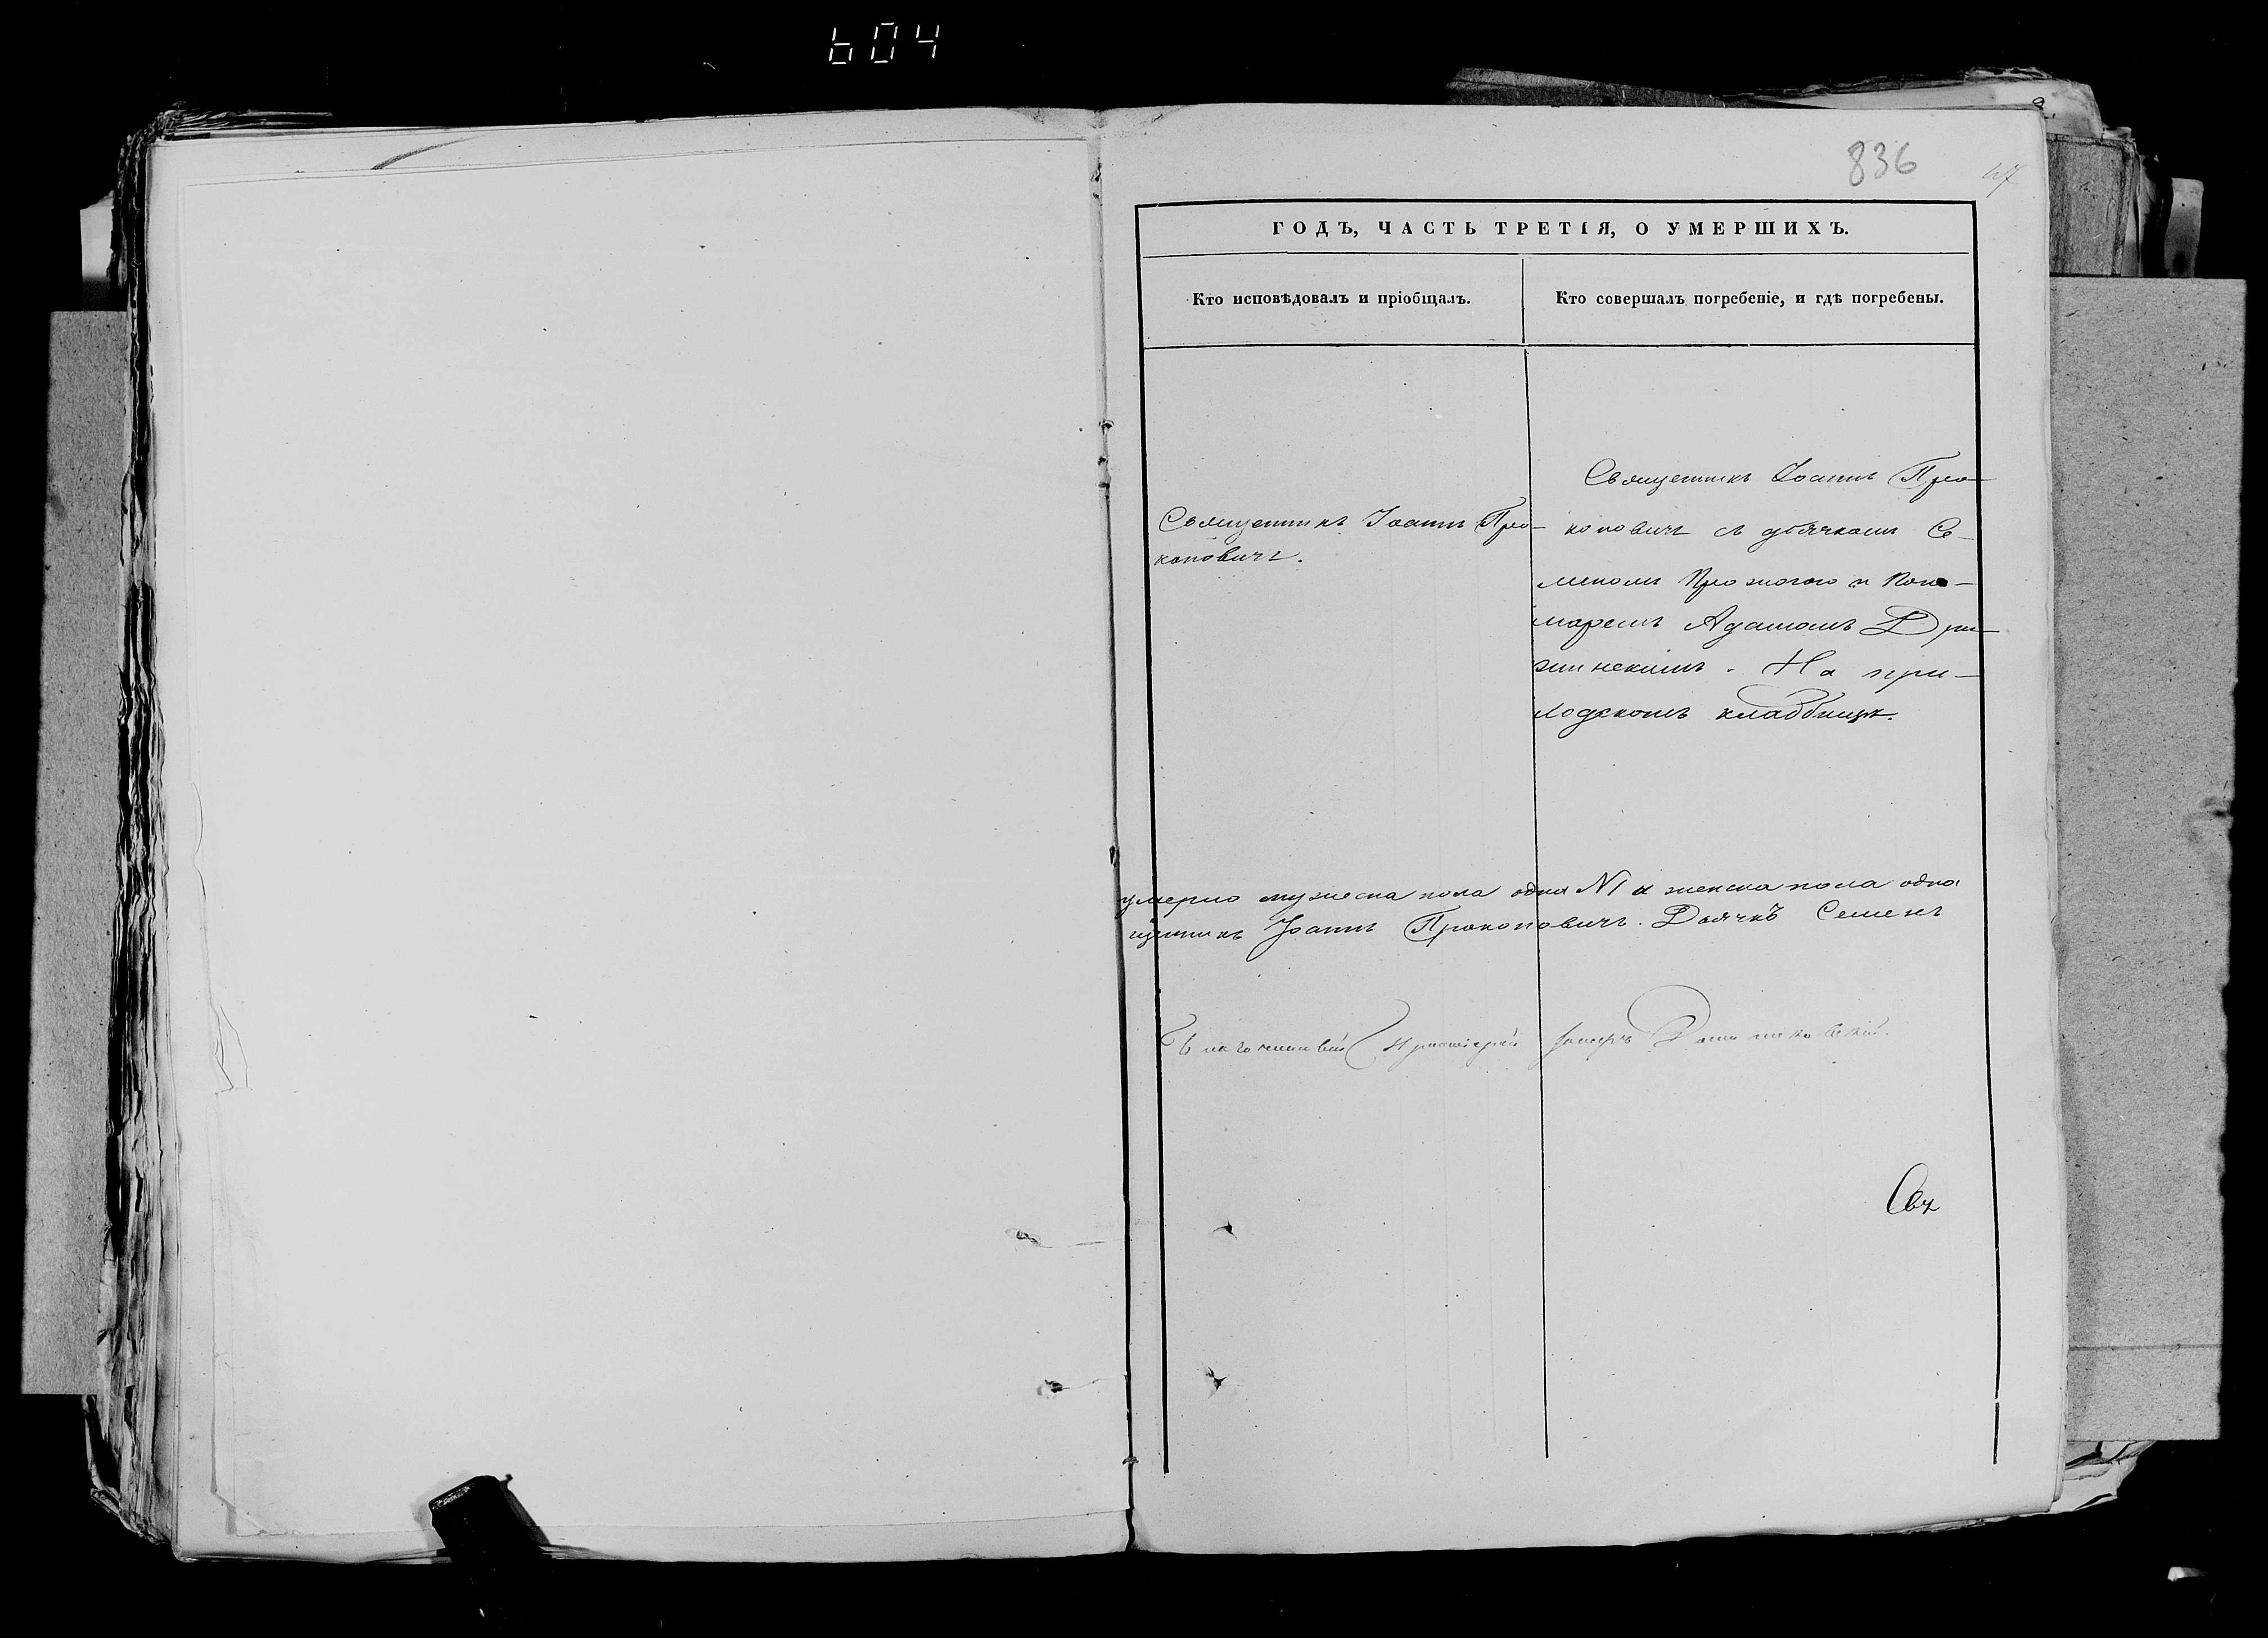 604
836
47
ГОДЪ, ЧАСТЬ ТРЕТІЯ, О УМЕРШИХЪ.
Кто исповѣдовалъ и пріобщалъ.
Кто совершалъ погребеніе, и гдѣ погребены.
Священникъ Іоаннъ Про-
коповичъ.
Священникъ Іоаннъ Про-
коповичъ съ дьячкомъ Се-
меномъ и Поно-
маремъ Адамомъ
На при-
ходскомъ кладбищѣ.
умерло мужеска пола одинъ №1 и женска пола одна
щенникъ Іоаннъ Прокоповичъ. Дьячкъ Семенъ
Благочинный Протоіерей